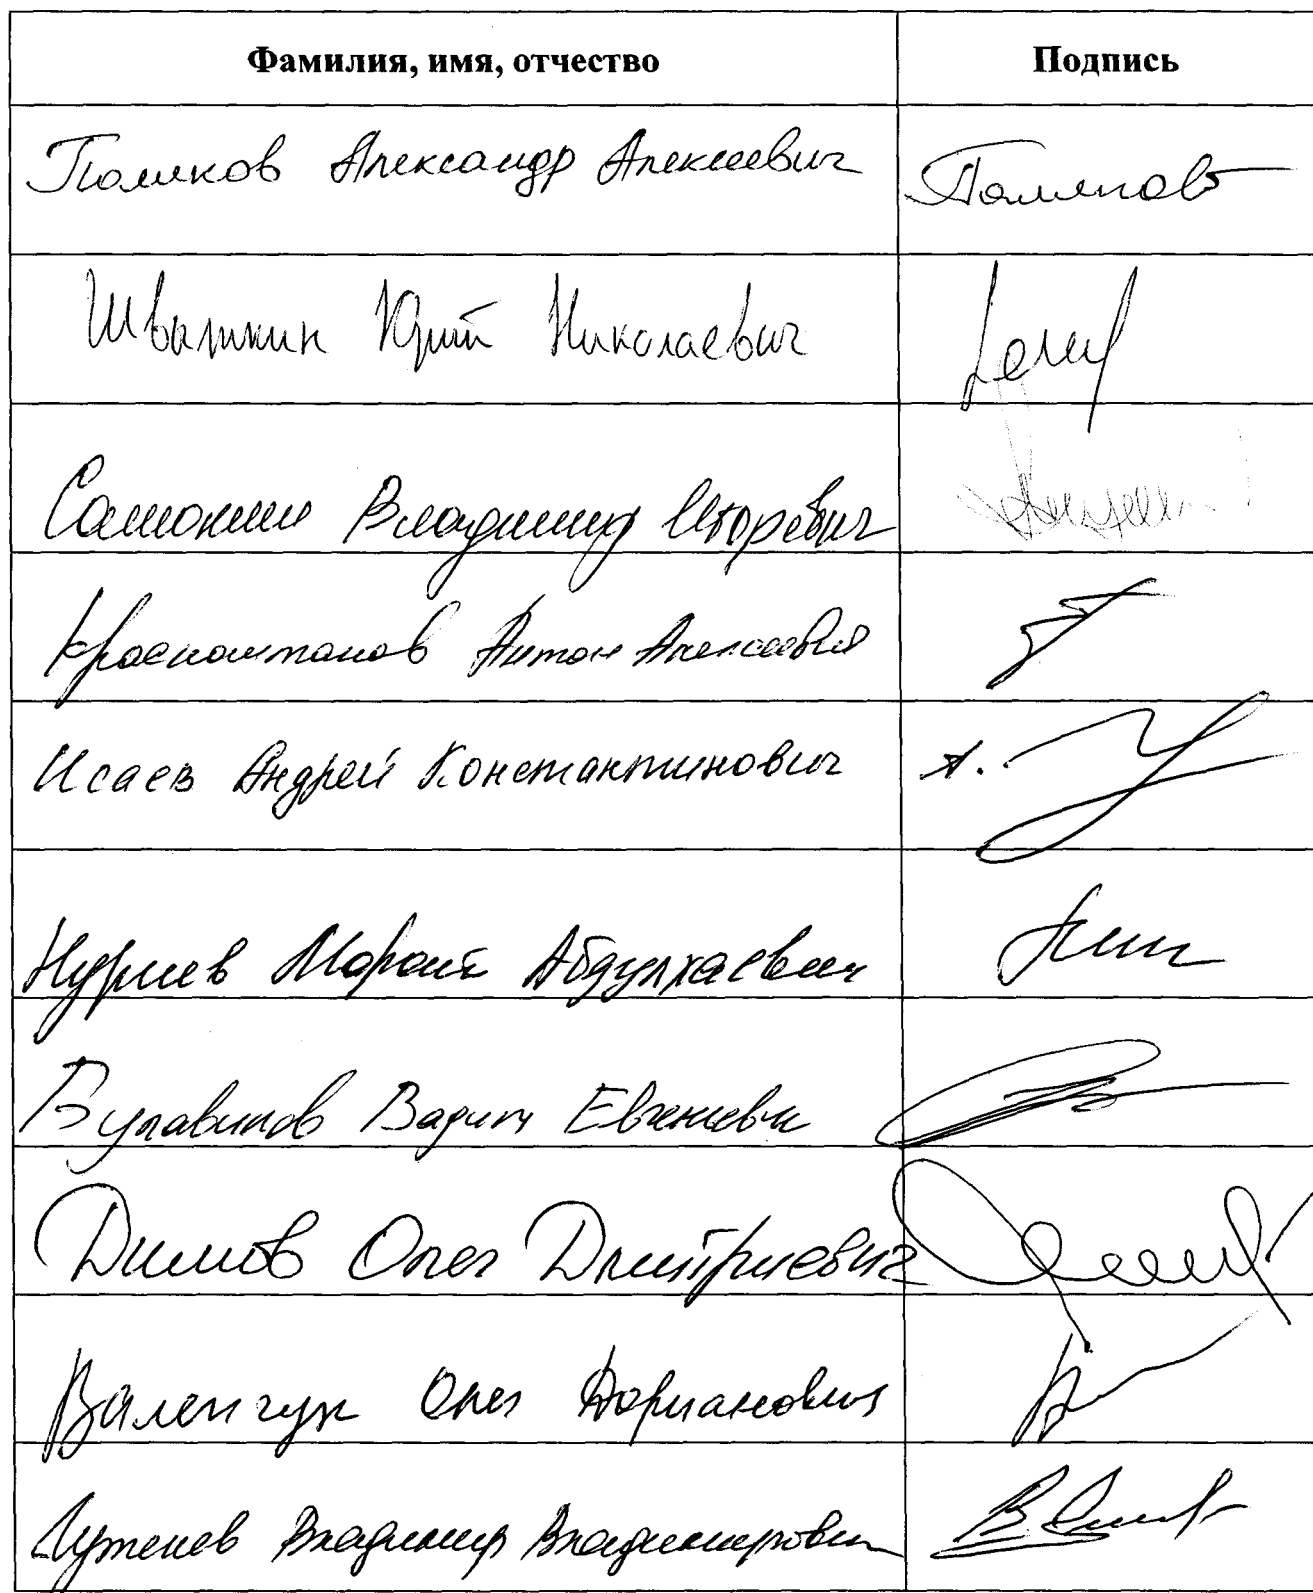 Фамилия, имя, отчество Подпись
Поляков Александр Алексеевич Поляков
Швыткин Юрий Николаевич
Самокиш Владимир Игоревич
Красноштанов Антон Алексеевич
Исаев Андрей Константинович
Нуриев Марат Абдулхаевич
Булавинов Вадим Евгеньевич
Димов Олег Дмитриевич
Валенчук Олег Дорианович
Владимир Владимирович